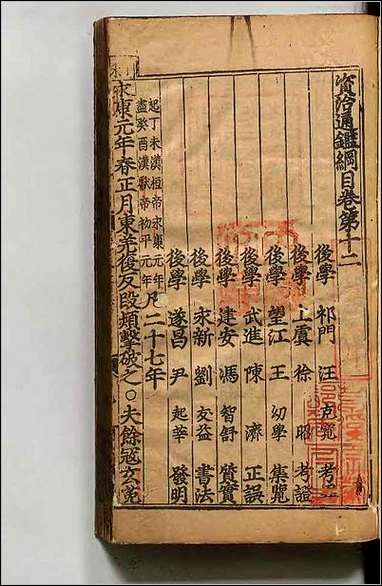 資治通鑑綱目卷第十二
後學 祁門 汪 克寬 考
後學 上虞 徐 昭 考證
後學 望江 王 幼學 集覽
後學 武進 陳 濟 正誤
後學 建安 馮 智舒 質實
後學 永新 劉 友益 書法
後學 遂昌 尹 起莘 發明
起丁未漢桓帝永康元年
盡癸酉漢獻帝初平元年
凡二十七年
永康元年春正月東羌復反段熲擊破之○夫餘寇玄菟